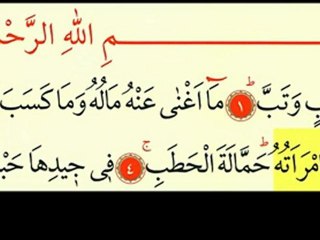 مِ اللهِ الرَّحْ
وَتَبَّ ۱ مَٓا اَغْنٰى عَنْهُ مَالُهُ وَمَا كَسَبَ
مْرَاَتُهُ حَمَّالَةَ الْحَطَبِ ۴ فٖى جٖيدِهَا